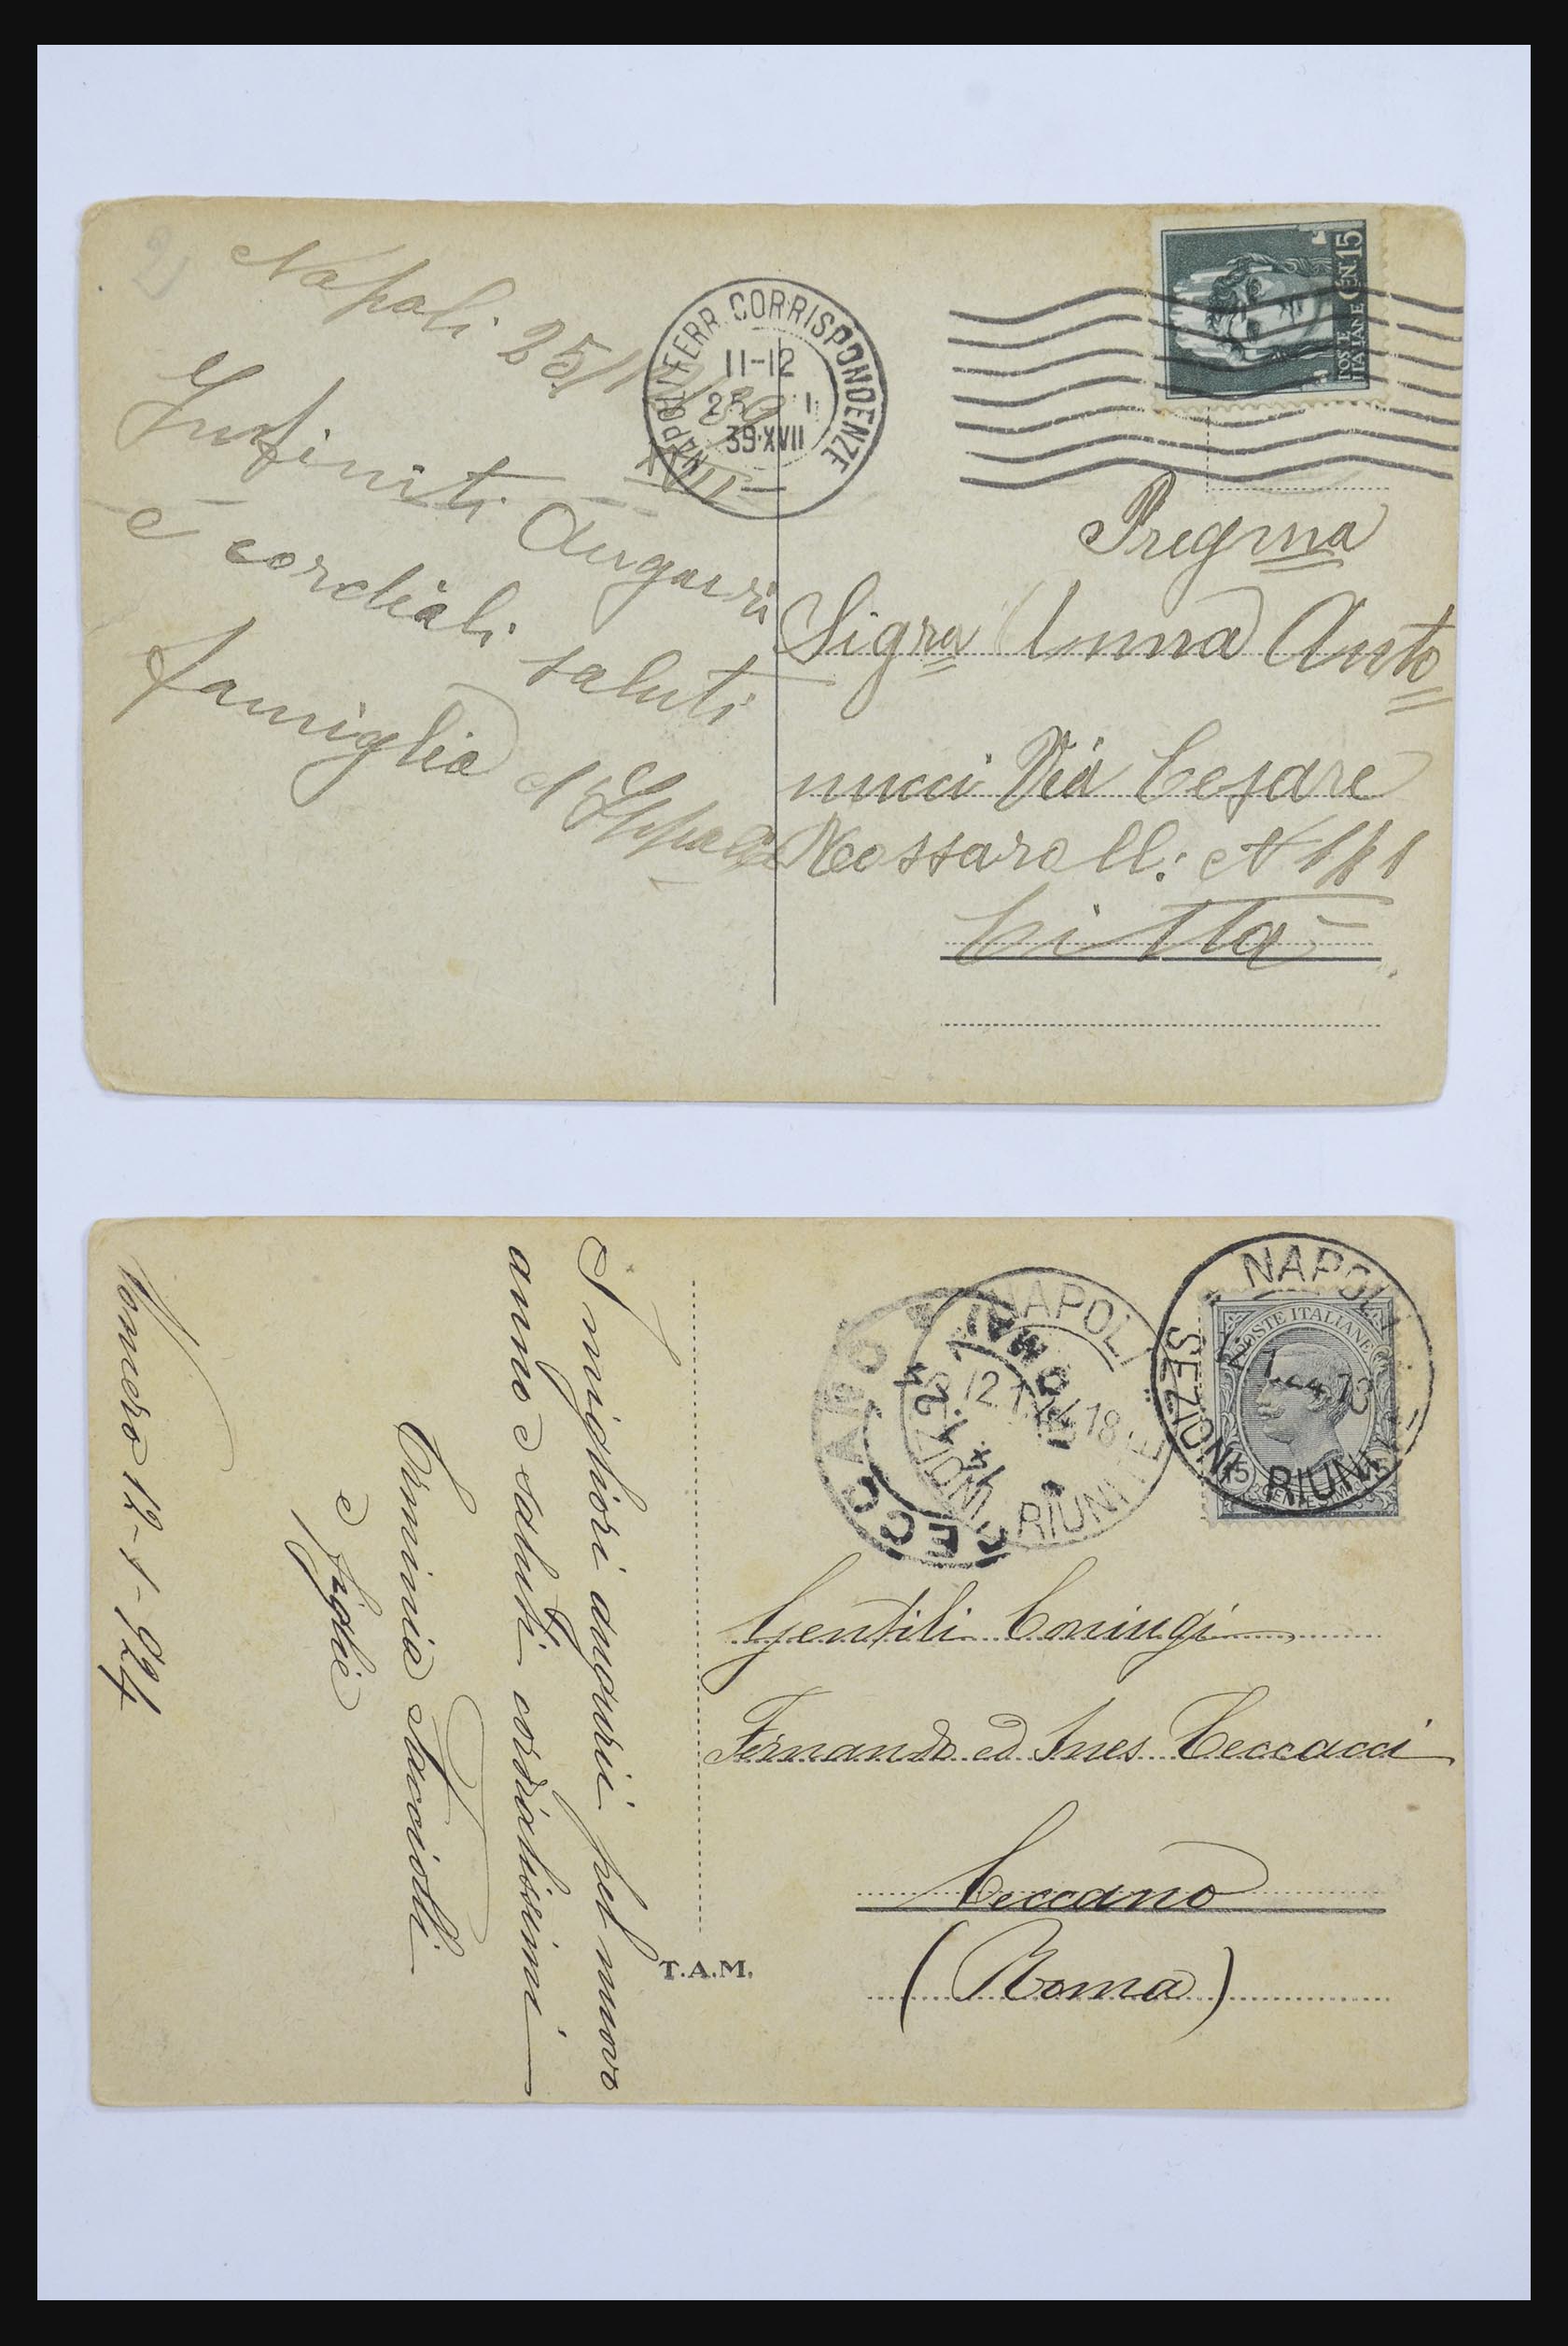 Napoli 25/1/39
XVII
Infiniti Auguri
e cordiali saluti
famiglia
NAPOLI FERR. CORRISPONDENZE
11-12
39·XVII
POSTE ITALIANE CEN 15
Pregma
Sigra Anna Anto
nucci Via Cesare
Rossaroll: N 141
Città
I migliori auguri pel nuovo
anno e saluti cordialissimi
Erminia
e figlie
Vomero 12-1-924
NAPOLI
SEZIONI RIUNITE
CECCANO
ROMA
NAPOLI
SEZIONI RIUNITE
POSTE ITALIANE
15 CENTESIMI 15
Gentili Coniugi
Fernando ed Ines Ceccacci
Ceccano
(Roma)
T.A.M.